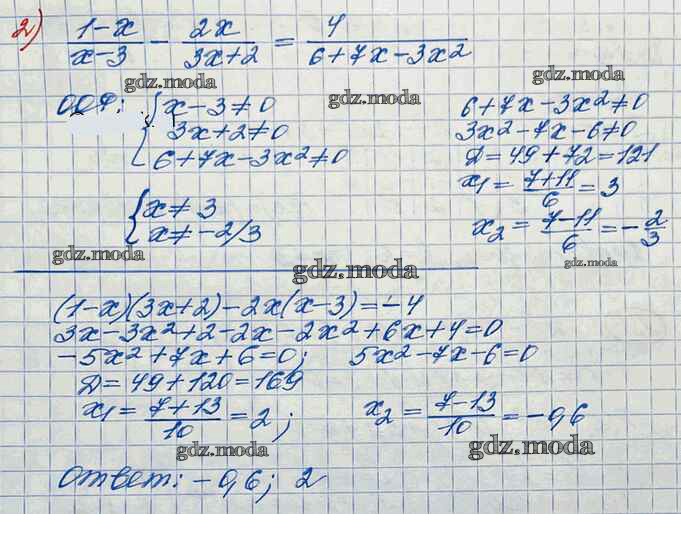 2) (1-x)/(x-3) - 2x/(3x+2) = 4/(6+7x-3x²)
gdz.moda gdz.moda
ООФ: { x-3≠0 gdz.moda 6+7x-3x²≠0
3x+2≠0 3x²-7x-6≠0
6+7x-3x²≠0 D=49+72=121
x₁=(7+11)/6=3
{ x≠3 x₂=(7-11)/6=-2/3
x≠-2/3
gdz.moda gdz.moda gdz.moda
(1-x)(3x+2)-2x(x-3)=-4
3x-3x²+2-2x-2x²+6x+4=0
-5x²+7x+6=0; 5x²-7x-6=0
D=49+120=169
x₁=(7+13)/10=2; x₂=(7-13)/10=-0,6
gdz.moda gdz.moda
Ответ: -0,6; 2
gdz.moda